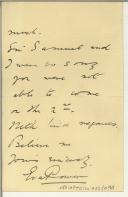 much.
Sir Samuel and
I were so sorry
you were not
able to come
on the 2nd.
With kind regards,
Believe me
Yours sincerely,
Eva